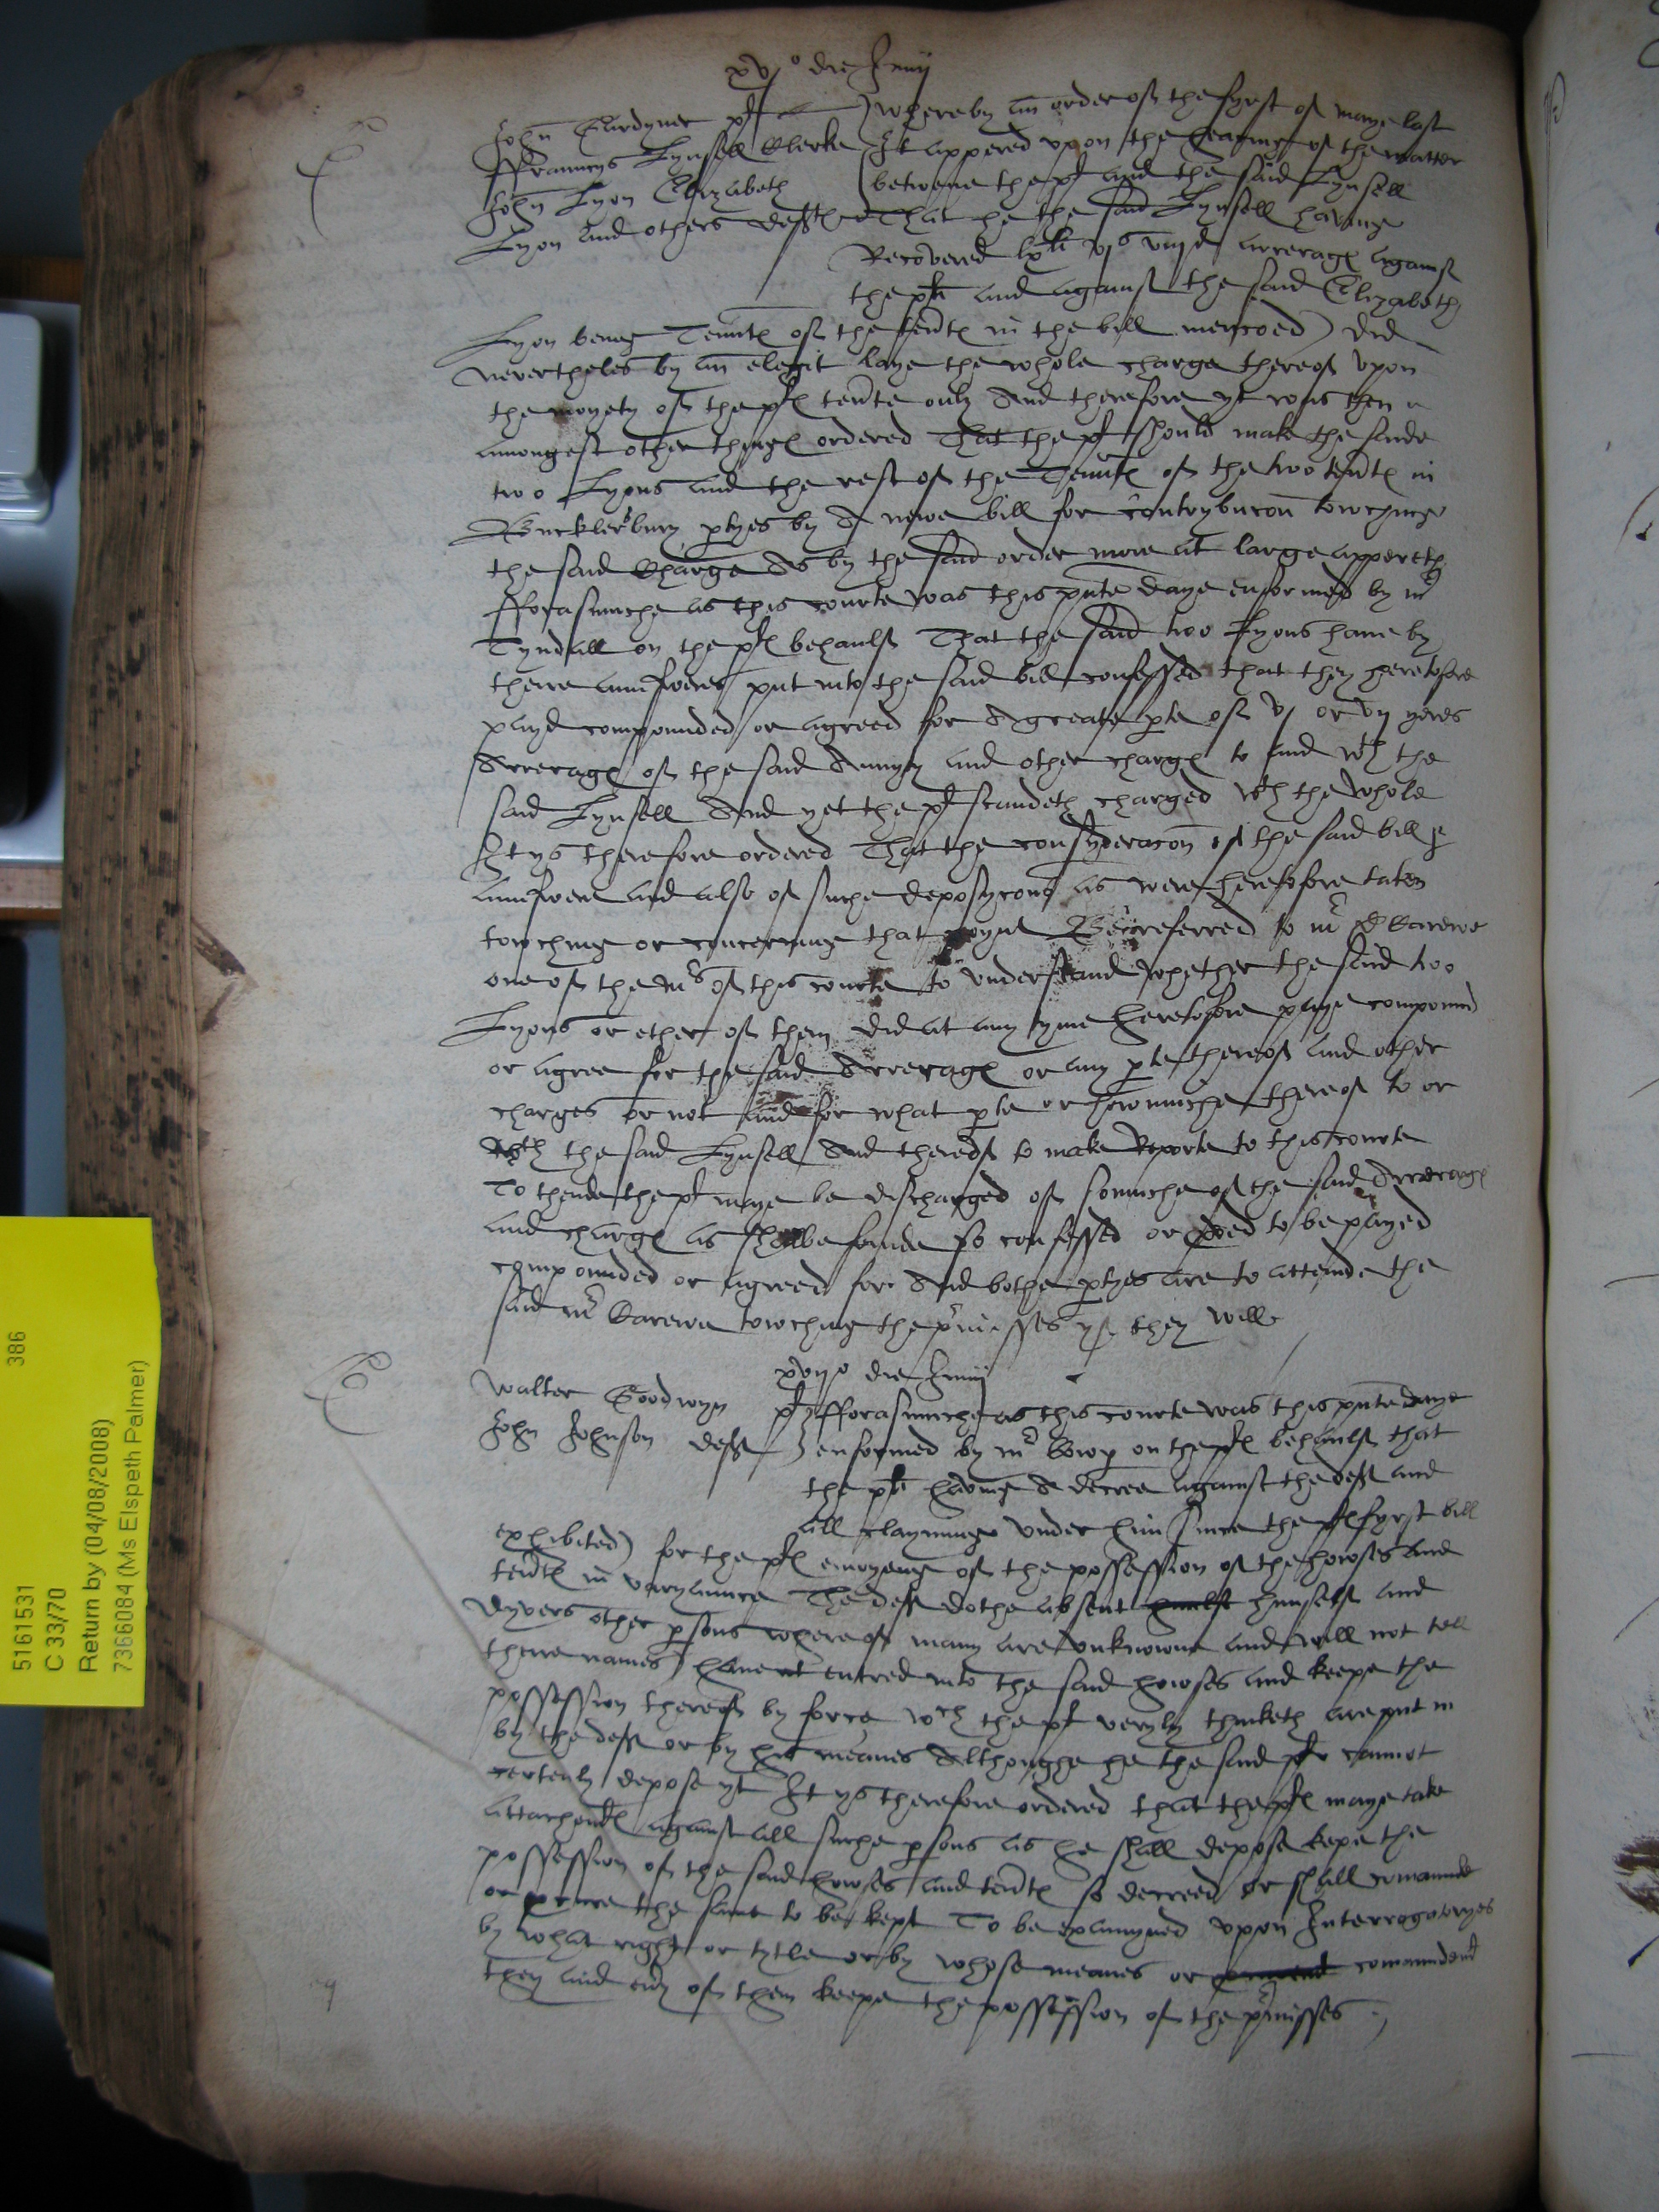 xvjo die Junij
John Gardyner pl Whereby an order of the fyrst of maye last
ffrauncys Lynsell Clerke It appered vpon the hearing of the matter
John Lyon Elizabeth betwene the pl and the said Lynsell
Lyon and others defftes That he the said Lynsell having
Recovered lxli vjs viijd arrerages against
the plt and against the said Elizabeth
Lyon being Tenntes of the tentes in the bill mencoed) did
nevertheles by an elegit laye the whole charge thereof vpon
the moyety of the ples tente only And therefore yt was then
amongest other thinges ordered That the pl should make the saide
two Lyons and the rest of the Tenntes of the two tentes in
Bucklersbury ptyes by A newe bill for contrybucon towching
the said Charge As by the said order more at large appereth
fforasmuche as this courte was this pnte daye enformed by mr
Tyndall on the ples behaulf That the said two Lyons have by
theire aunsweres put into the said bill confessed that they heretofore
payd compounded or agreed for A greate pte of vj or vij yeres
Arrerages of the said Annyty and other charges to and wth the
said Lynsell And yet the pl standeth charged wth the whole
It ys therefore ordered That the consyderacon of the said bill &
aunswere and also of suche deposycons as were heretofore taken
towching or concerning that poynt Be referred to mr D Carewe
one of the mrs of this courte to vnderstand whether the said two
Lyons or ether of them did at any tyme heretofore paye compound
or agree for the said Arrerages or any pte thereof and other
charges or not and for what pte or howmuche thereof to or
wth the said Lynsell And thereof to make Reporte to this courte
To thende the pl maye be discharged of somuche of the said Arrerages
and charges as shalbe founde so confessed or pved to be payed
compounded or agreed for And bothe ptyes are to attende the
said mr Carewe towching the pmisses yf they will
xvijo die Junij
Walter Goodwyn pl fforasmuche as this courte was this pnte daye
John Johnson deff enformed by mr Cowp on the ples behaulf that
the plt having A decree against the deff and
all clayming vnder him (since the ples fyrst bill
exhibited) for the ples enioyeng of the possession of the howses and
tentes in varyaunce The deff dothe absent himself and
dyvers other psons whereof many are vnknowne and will not tell
theire names) have entred into the said howses and keepe the
possession thereof by force wch the pl veryly thinketh are put in
by the deff or by his meanes Althoughe he the said pl cannot
certenly depose yt It ys therefore ordered that the ple maye take
attachentes against all suche psons as he shall depose kepe the
possession of the said howses and tentes so decreed or shall comaunde
or pcure the same to be kept To be examyned vpon Interrogatoryes
by what right or tytle or by whose meanes or commendent
they and euy of them keepe the possession of the pmisses
5161531 386
C 33/70
Return by (04/08/2008)
7366084 (Ms Elspeth Palmer)